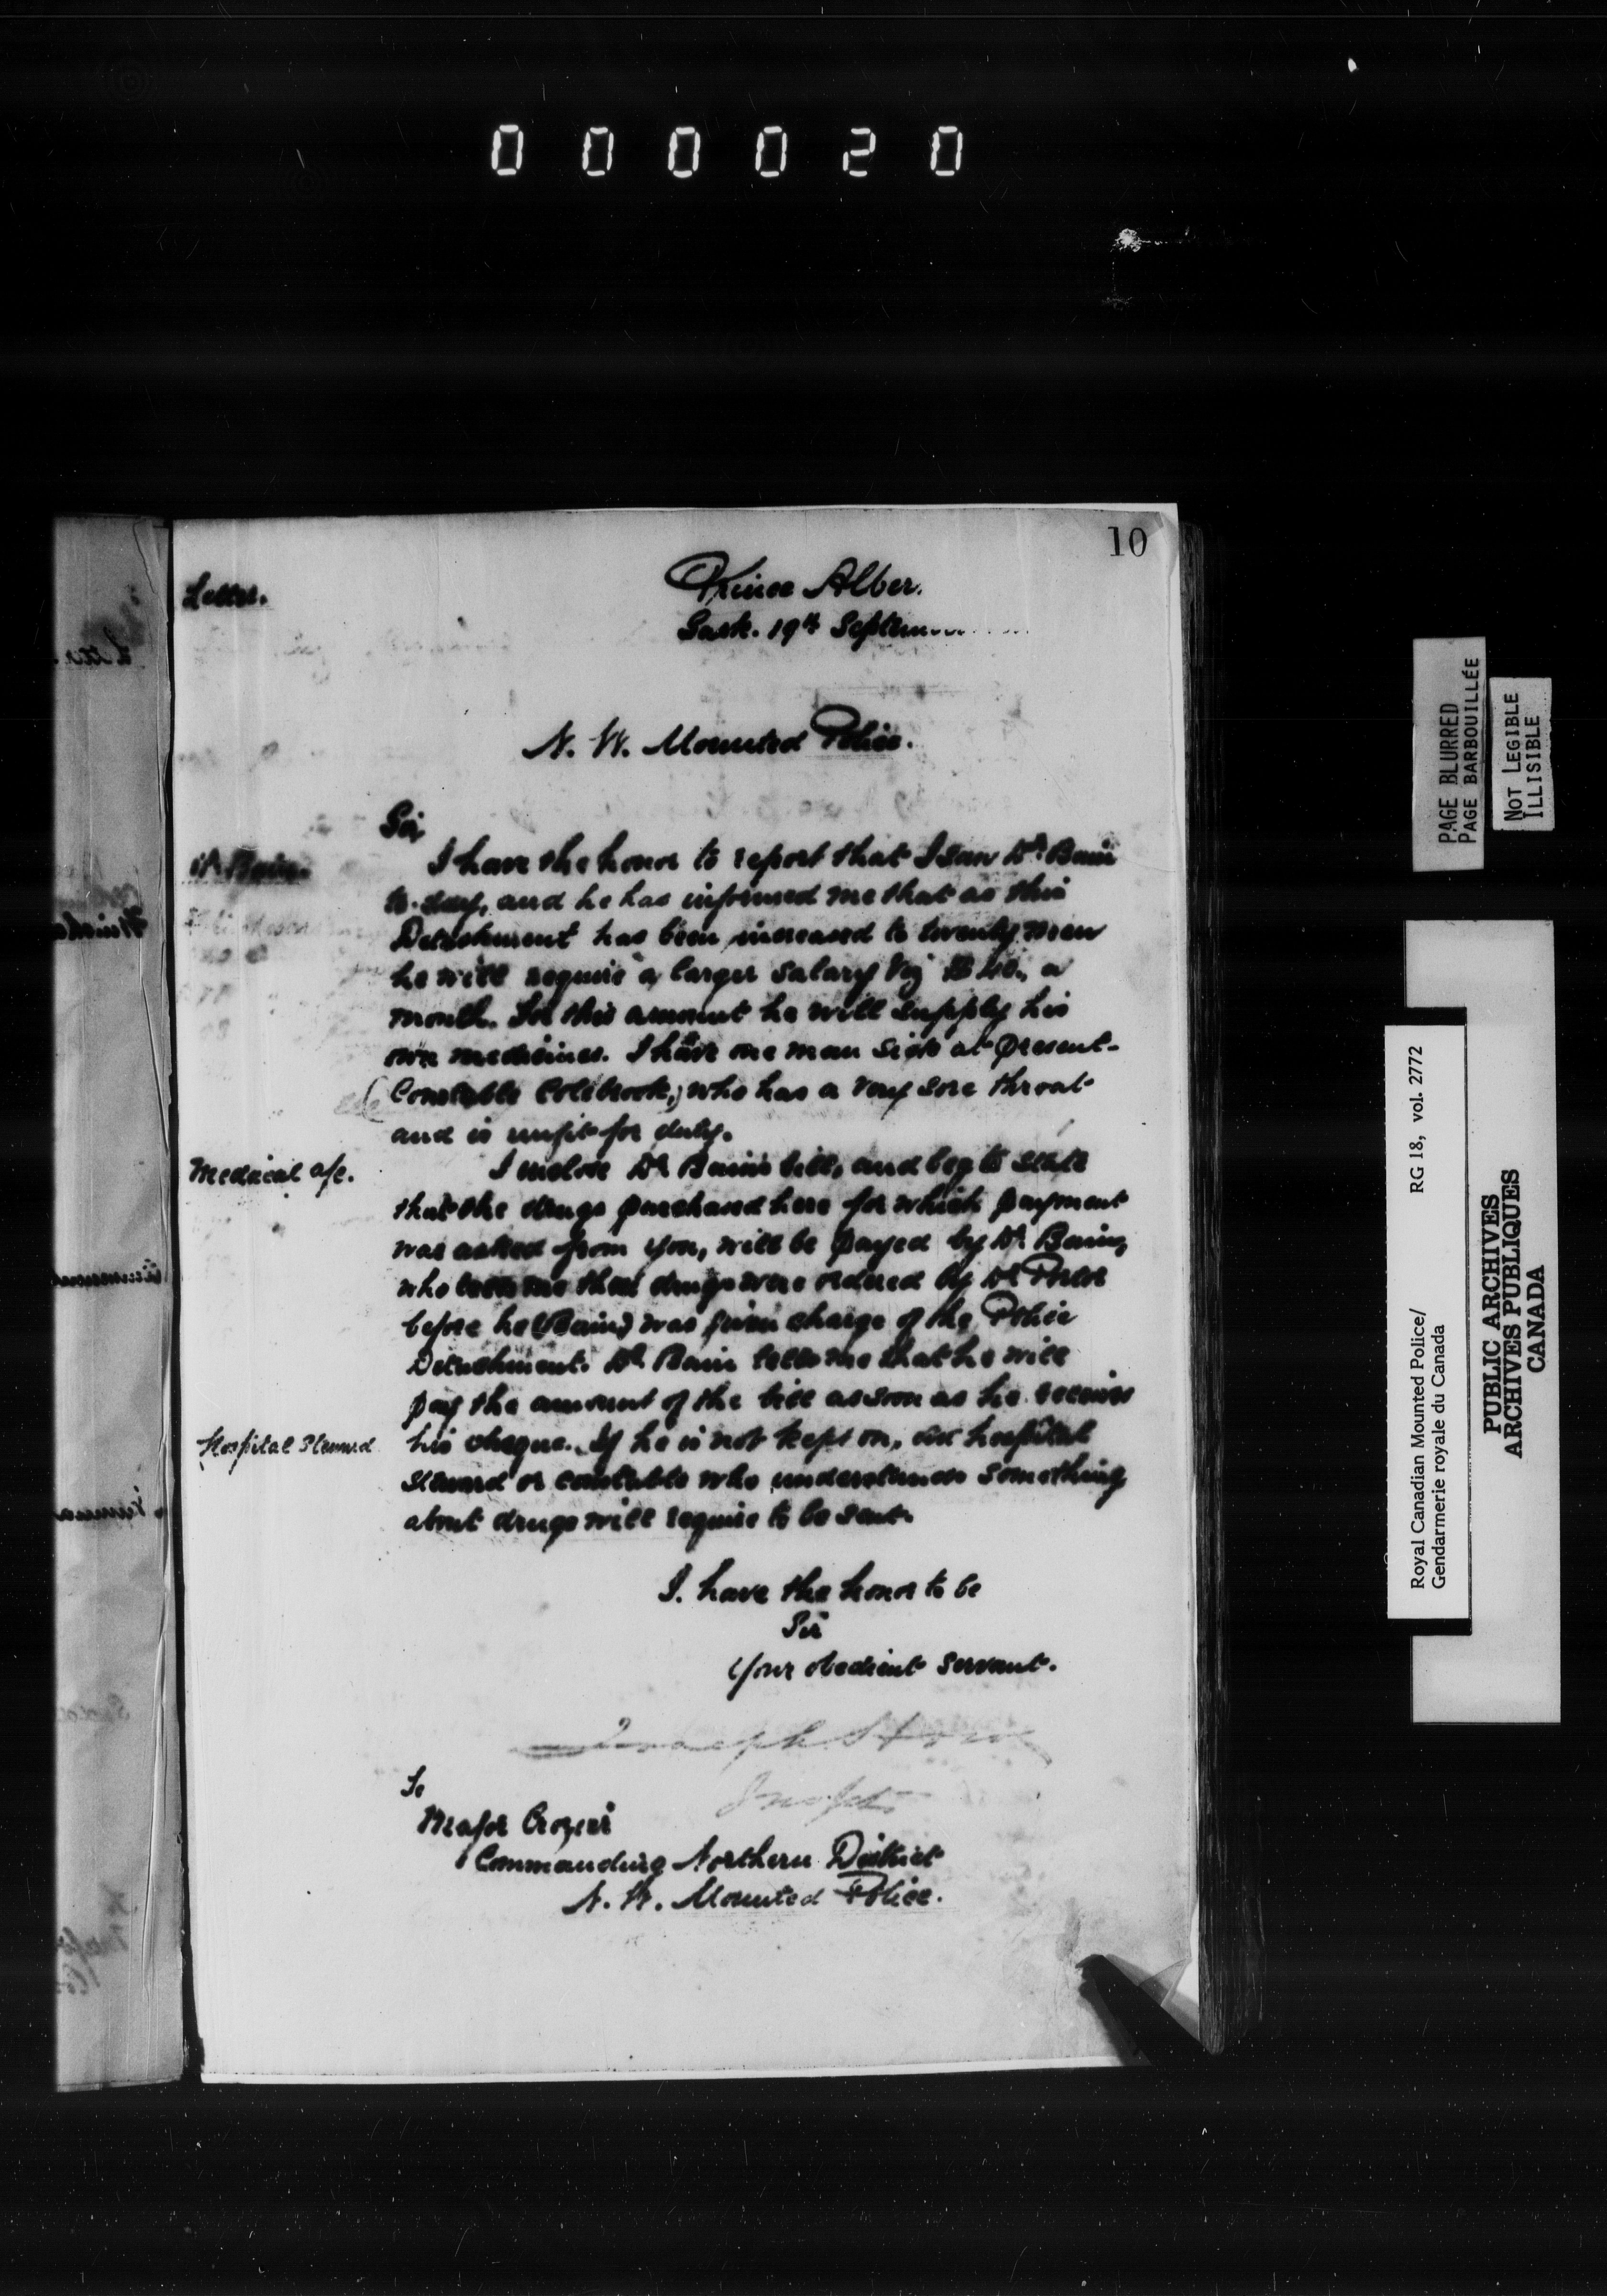 000020
10
Letter.
Prince Alber.
Sask. 19th Septem
N. W. Mounted Police.
Sir,
Dr Bain.
I have the honor to report that I saw Dr Bain
to-day, and he has informed me that as this
Detachment has been increased to twenty men
he will require a larger salary viz $40. a
month. For this amount he will supply his
own medicines. I have one man sick at present-
(Constable Colebrook,) who has a very sore throat
and is unfit for duty.
Medical a/c.
I enclose Dr Bain's bill, and beg to state
that the drugs purchased here for which payment
was asked from you, will be payed by Dr Bain,
who me that drugs were ordered by Dr
before he (Bain) was given charge of the Police
Detachment. Dr Bain tells me that he will
pay the amount of the bill as soon as he receives
Hospital Steward
his cheque. If he is not kept on, hospital
steward or constable who understands something
about drugs will require to be sent.
I have the honor to be
Sir
Your obedient servant.
Joseph Howe
Inspt.
To
Major Crozier
Commanding Northern District
N. W. Mounted Police.
PAGE BLURRED
PAGE BARBOUILLÉE
NOT LEGIBLE
ILLISIBLE
Royal Canadian Mounted Police/
Gendarmerie royale du Canada
RG 18, vol. 2772
PUBLIC ARCHIVES
ARCHIVES PUBLIQUES
CANADA